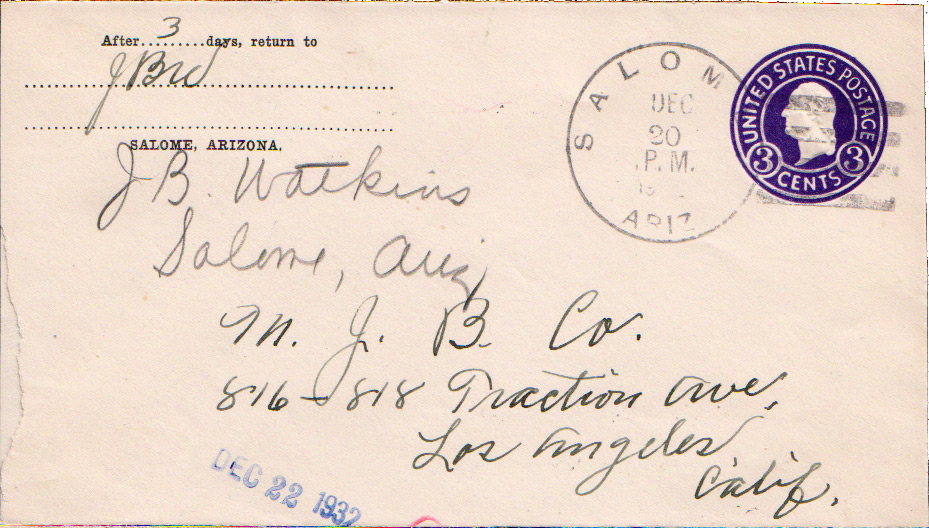 After 3 days, return to
J B W
SALOME, ARIZONA.
J B. Watkins
Salome, Ariz
M. J. B. Co.
816-818 Traction Ave,
Los Angeles
Calif.
SALOM
DEC
20
P.M.
ARIZ
UNITED STATES POSTAGE
3 3
CENTS
DEC 22 1932